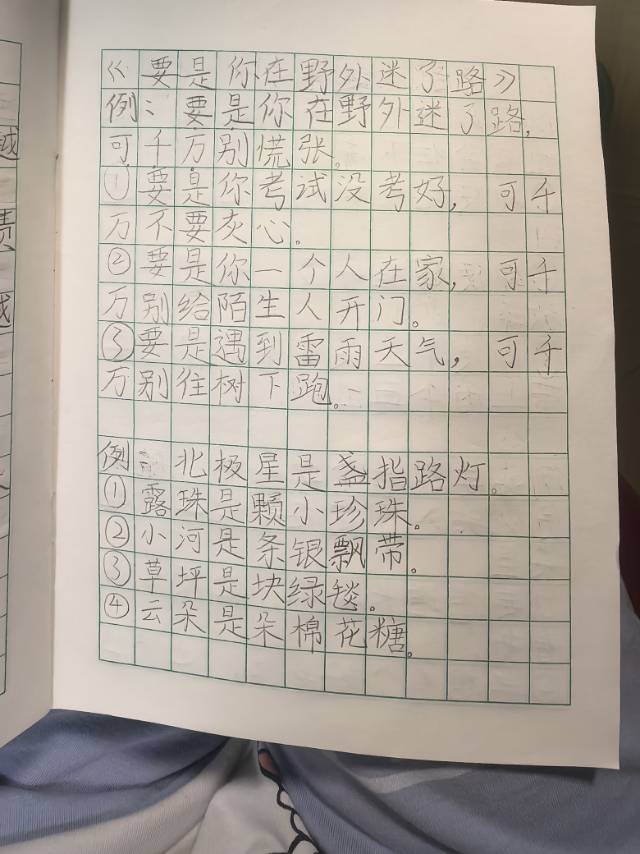 《要是你在野外迷了路》
例：要是你在野外迷了路，
可千万别慌张。
①要是你考试没考好，可千
万不要灰心。
②要是你一个人在家，可千
万别给陌生人开门。
③要是遇到雷雨天气，可千
万别往树下跑。
例：北极星是盏指路灯。
①露珠是颗小珍珠。
②小河是条银飘带。
③草坪是块绿毯。
④云朵是朵棉花糖。
越
责
越